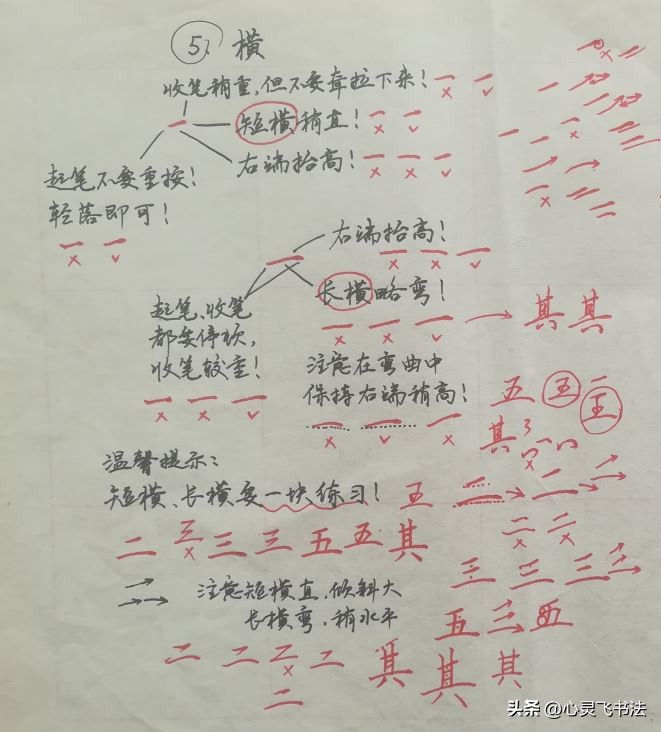 5、横
收笔稍重,但不要耷拉下来!
短横稍直!
右端抬高!
起笔不要重按!
轻落即可!
右端抬高!
长横略弯!
起笔、收笔
都要停顿,
收笔较重!
其 其
注意在弯曲中
保持右端稍高!
五 五 王
其
温馨提示:
短横、长横要一块练习!
王
二 三 三 三 五 五 其
二 二
三 三 三
注意短横直,倾斜大
长横弯,稍水平
五 三 西
二 二 二 二 其 其 其
二
头条 @心灵飞书法